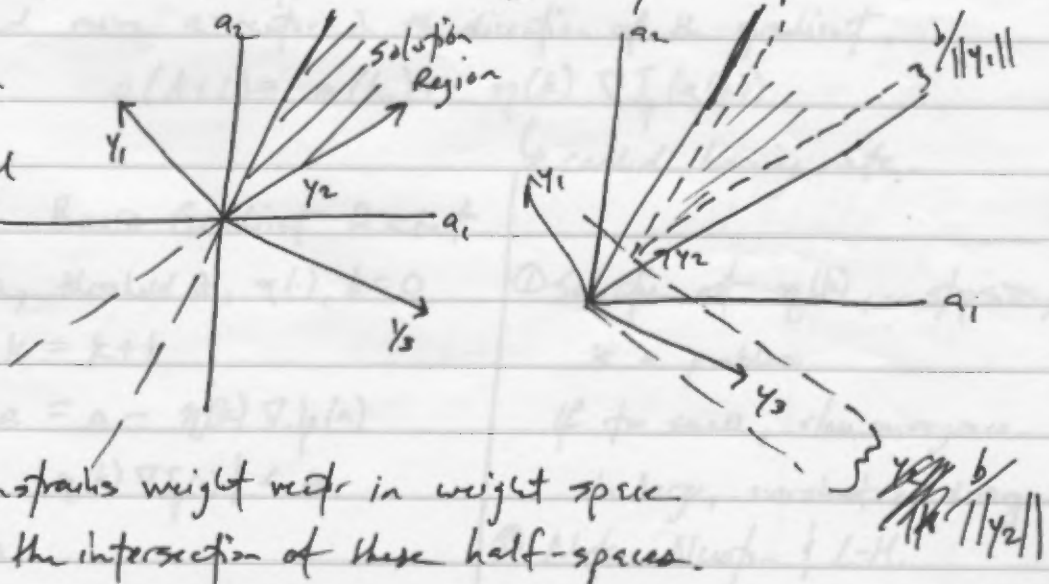 a₂
solution
Region
y₁
y₂
a₁
y₃
a₂
b/||y₁||
y₁
y₂
a₁
y₃
b/||y₂||
weight vectr in weight space
the intersection of these half-spaces.